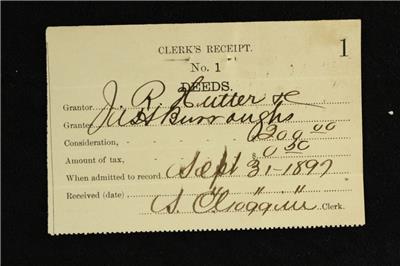 CLERK'S RECEIPT.
No. 1
1
DEEDS.
Grantor R. Hutter &
Grantee Burroughs
Consideration, 200 00
Amount of tax, $ 0 50
When admitted to record, Sept 31-1897
Received (date) " " "
S. Goggin Clerk.